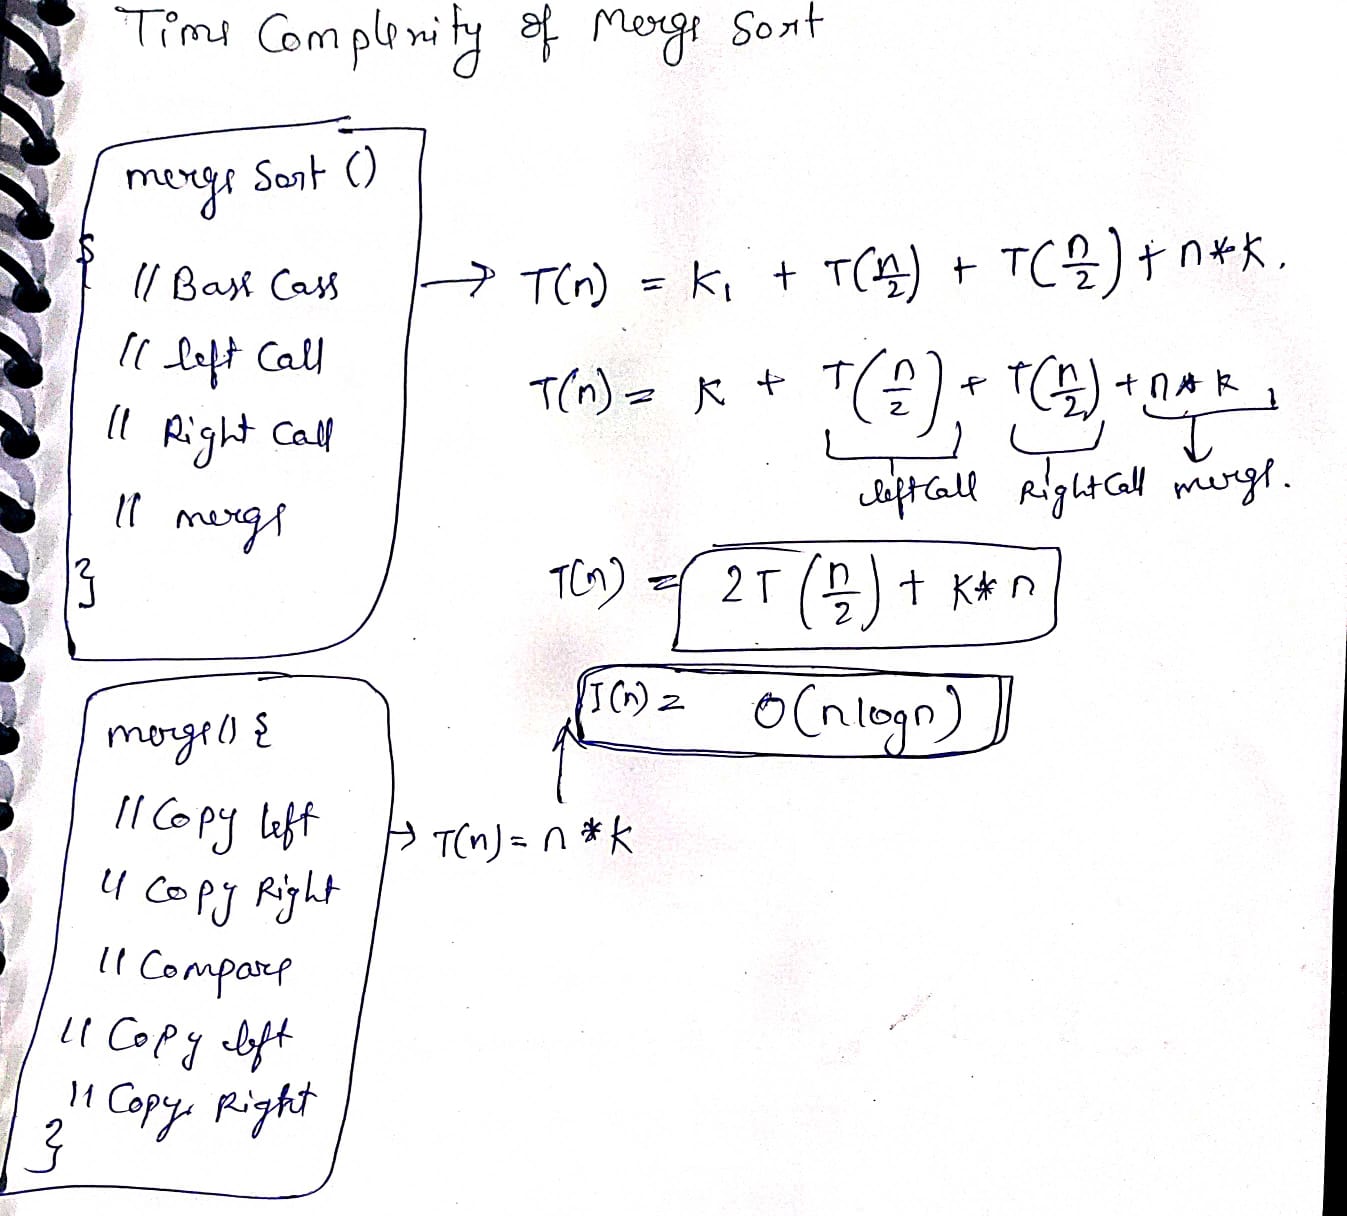 Time Complexity of Merge Sort
merge Sort ()
{
// Base Case
// left Call
// Right Call
// merge
}
→ T(n) = K₁ + T(n/2) + T(n/2) + n*K.
T(n) = K + T(n/2) + T(n/2) + n*K
left Call Right Call merge.
T(n) = 2T (n/2) + K*n
T(n) = O(nlogn)
merge() {
// Copy left
// Copy Right
// Compare
// Copy left
// Copy Right
}
→ T(n) = n*K